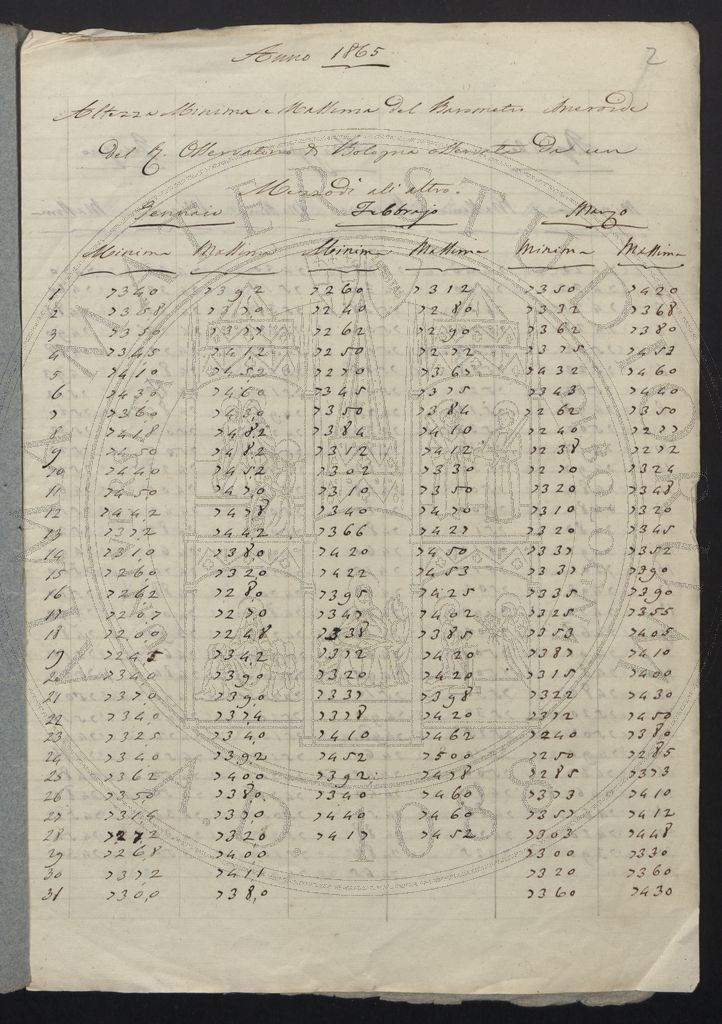 2
Anno 1865
Altezza Minima e Massima del Barometro Aneroide
del R. Osservatorio di Bologna osservata da un
Mezzodì all'altro.
Gennaio Febbrajo Marzo
Minima Massima Minima Massima Minima Massima
1 7340 7392 7260 7312 7350 7420
2 7358 7370 7240 7280 7332 7368
3 7350 7377 7262 7290 7362 7380
4 7345 7412 7250 7272 7375 7453
5 7410 7452 7270 7367 7432 7460
6 7430 7460 7345 7375 7343 7440
7 7360 7430 7350 7384 7262 7350
8 7418 7482 7384 7410 7240 7277
9 7450 7482 7312 7412 7238 7272
10 7440 7452 7302 7330 7270 7324
11 7450 7470 7310 7350 7320 7348
12 7442 7478 7340 7470 7310 7320
13 7372 7442 7366 7427 7320 7345
14 7310 7380 7420 7450 7337 7352
15 7260 7320 7422 7453 7337 7390
16 7262 7280 7395 7425 7335 7390
17 7207 7270 7347 7402 7325 7355
18 7200 7248 7338 7385 7353 7405
19 7245 7342 7372 7420 7387 7410
20 7340 7390 7320 7420 7315 7400
21 7370 7390 7337 7398 7322 7430
22 7340 7374 7378 7420 7372 7450
23 7325 7340 7410 7462 7240 7380
24 7340 7392 7452 7500 7250 7285
25 7362 7400 7392 7478 7285 7373
26 7350 7380 7340 7460 7373 7410
27 7314 7370 7440 7460 7357 7412
28 7272 7320 7417 7452 7303 7448
29 7268 7400 7300 7330
30 7372 7411 7320 7360
31 7300 7380 7360 7430
ALMA MATER STUDIORUM
A.D. 1088